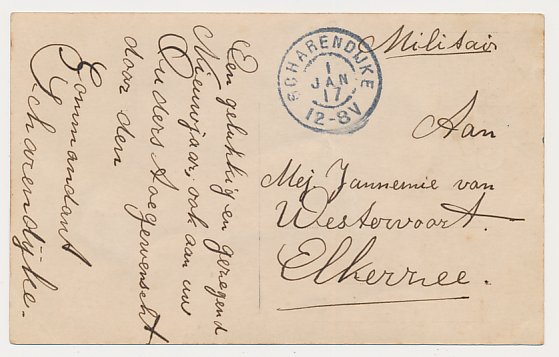 Een gelukkig en gezegend
Nieuwjaar, ook aan uw
Ouders toegewenscht
door den
Commandant
Scharendijke.
SCHARENDIJKE
1
JAN
17
12-8V
Militair
Aan
Mej. Jannemie van
Westervoort.
Elkerzee.